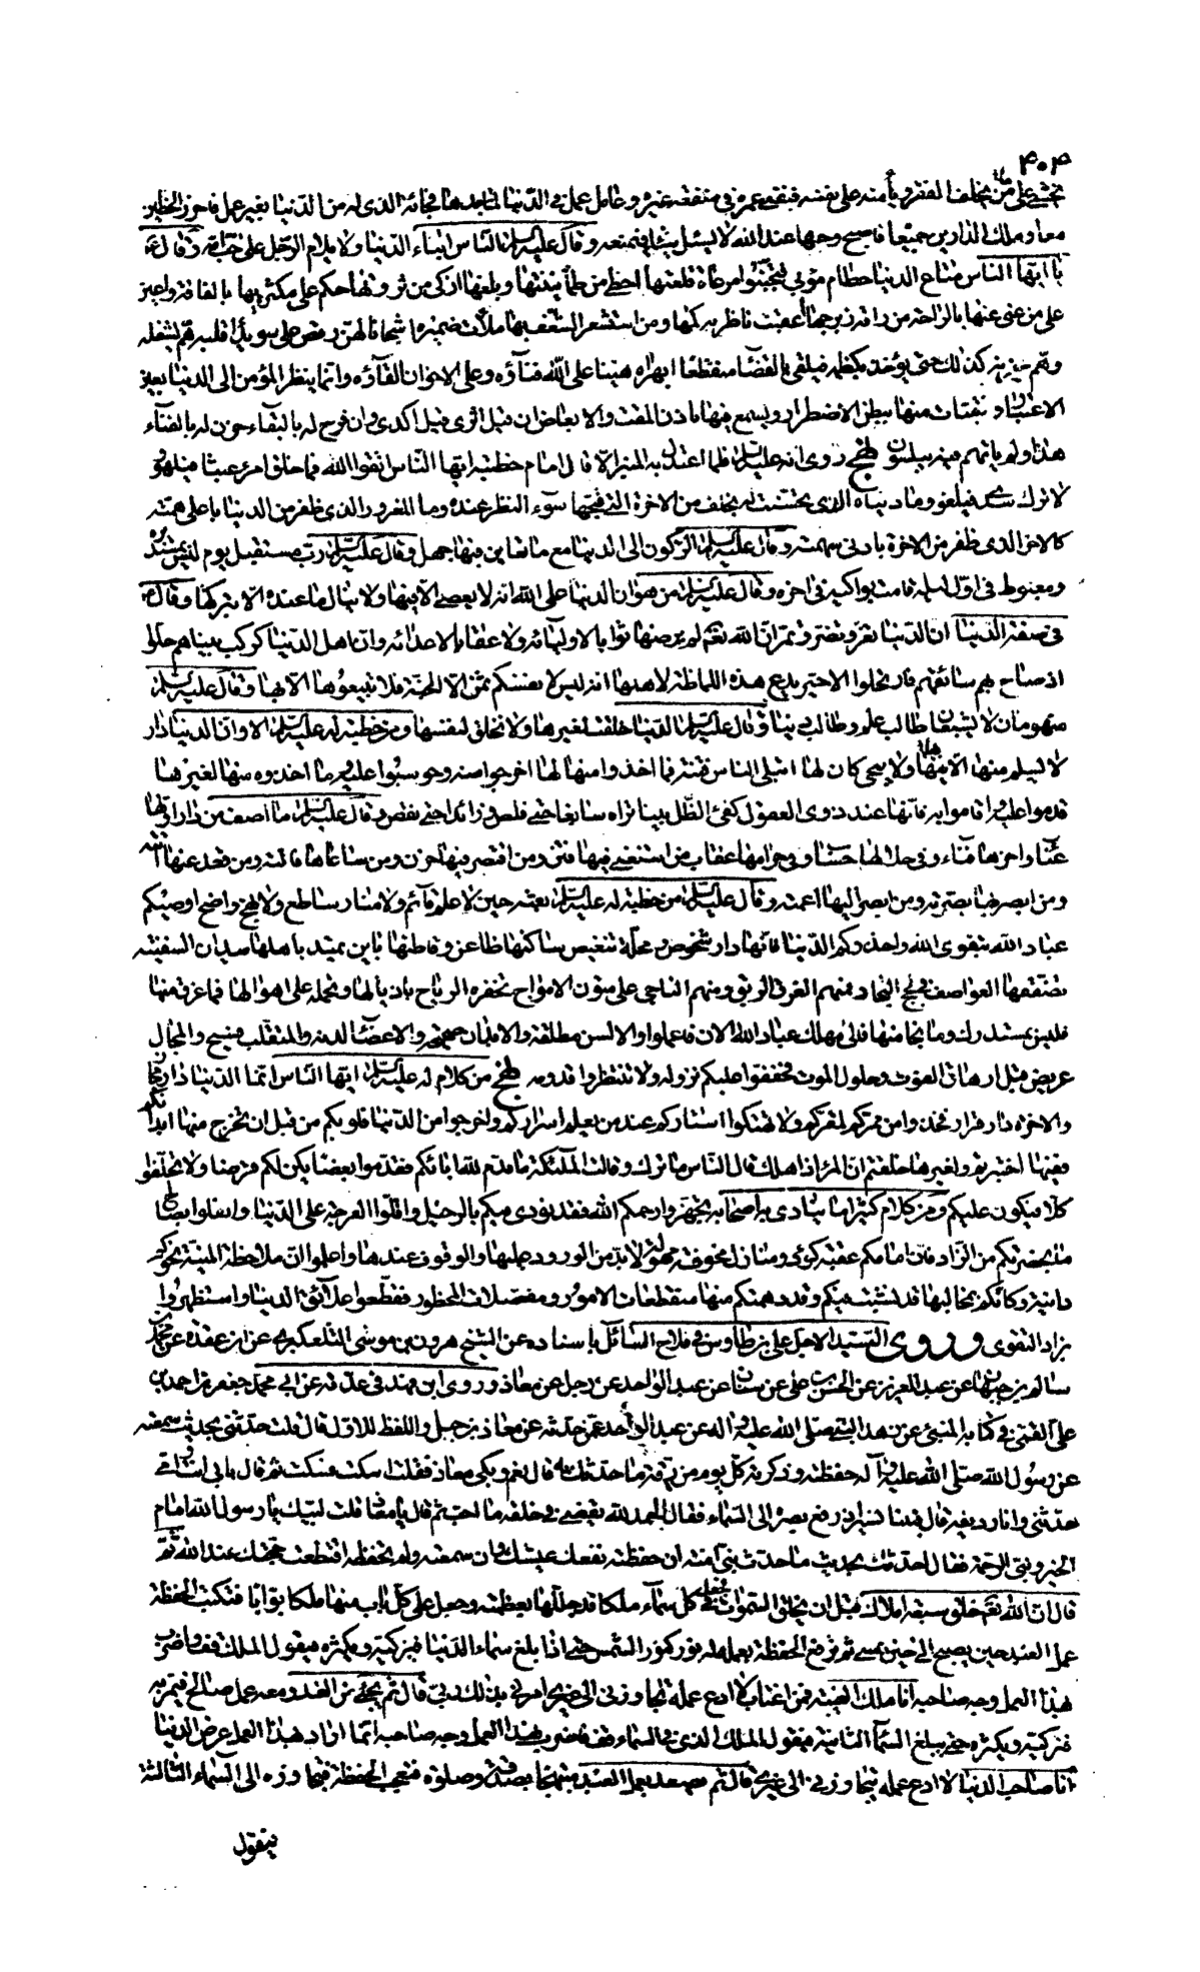 ٤٠٤
يخشى على من يخلف الفقر و يأمنه على نفسه فيفنى عمره في منفعة غيره و عامل عمل في الدنيا لما بعدها فجاءه الذى له من الدنيا بغير عمل فاحرز الحظين
معا و ملك الدارين جميعا فاصبح وجيها عند الله لا يسئل شيئا فيمنعه و قال عليه السلام الناس ابناء الدنيا ولا يلام الرجل على حب امه و قال ع
يا ايها الناس متاع الدنيا حطام موبئ فتجنبوا مرعاة قلعتها احظى من طمأنينتها و بلغتها ازكى من ثروتها حكم على مكثر بها بالفاقة و اعين
على من غنى عنها بالراحة من راقه زبرجها اعقبت ناظريه كمها و من استشعر الشعف بها ملأت ضميره اشجانا لهن رقص على سويداء قلبه هم يشغله
و هم يحزنه كذلك حتى يؤخذ بكظمه فيلقى بالفضاء منقطعا ابهراه هينا على الله فناؤه و على الاخوان القاؤه و انما ينظر المؤمن الى الدنيا بعين
الاعتبار و يقتات منها ببطن الاضطرار و يسمع فيها باذن المقت والا بعاض ان قيل اثرى قيل اكدى و ان فرح له بالبقاء حزن له بالفناء
هذا و لم يأتهم فيه يبلسون نهج روى انه عليه السلام قلما اعتدل به المنبر الا قال امام خطبته ايها الناس اتقوا الله فما خلق امرء عبثا فيلهو
لا ترك سدى فيلغو و ما دنياه الذى تحسنت له بخلف من الاخرة التى قبحها سوء النظر عنده و ما المغرور الذى ظفر من الدنيا باعلى همته
كالاخر الذى ظفر من الاخرة بادنى سهمته و قال عليه السلام الركون الى الدنيا مع ما تعاين فيها جهل و قال عليه السلام رب مستقبل يوم ليس بمستدبره
و مغبوط فى اول ليله قامت بواكيه فى اخره و قال عليه السلام من هوان الدنيا على الله انه لا يعصى الا فيها ولا ينال ما عنده الا بتركها و قال ع
فى صفة الدنيا ان الدنيا تغر و تضر و تمر ان الله تعالى لم يرضها ثوابا لاوليائه ولا عقابا لاعدائه و ان اهل الدنيا كركب بيناهم حلوا
اذ صاح بهم سائقهم فارتحلوا الا حر يدع هذه اللماظة لاهلها انه ليس لانفسكم ثمن الا الجنة فلا تبيعوها الا بها و قال عليه السلام
منهومان لا يشبعان طالب علم و طالب دنيا و قال عليه السلام الدنيا خلقت لغيرها ولم تخلق لنفسها و من خطبة له عليه السلام الا و ان الدنيا دار
لا يسلم منها الا فيها ولا ينجى كان لها ابتلى الناس فتنة فما اخذوا منها لها اخرجوا منه و حوسبوا عليه و ما اخذوه منها لغيرها
قدموا عليه و اقاموا به فانها عند ذوى العقول كفئ الظل بينا تراه سابغا حتى قلص و زائدا حتى نقص و قال عليه السلام ما اصف من دار اولها
عناء و اخرها فناء و فى حلالها حساب و فى حرامها عقاب من استغنى فيها فتن و من افتقر فيها حزن و من ساعاها فاتته و من قعد عنها اتته
و من ابصر بها بصرته و من ابصر اليها اعمته و قال عليه السلام من خطبة له عليه السلام بعثه حين لا علم قائم ولا منار ساطع ولا نهج واضح اوصيكم
عباد الله بتقوى الله و احذركم الدنيا فانها دار شخوص و محلة تنغيص ساكنها ظاعن و قاطنها باين تميد باهلها ميدان السفينة
تصفقها العواصف فى لجج البحار فمنهم الغرق الوبق و منهم الناجى على متون الامواج تحفزه الرياح باذيالها و تحمله على اهوالها فما غرق منها
فليس بمستدرك و ما نجا منها فالى مهلك عباد الله الان فاعملوا و الالسن مطلقة و الابدان صحيحة و الاعضاء لدنة و المنقلب فسيح و المجال
عريض قبل ارهاق الفوت و حلول الموت فحققوا عليكم نزوله ولا تنتظروا قدومه نهج من كلام له عليه السلام ايها الناس انما الدنيا دار مجاز
و الاخرة دار قرار فخذوا من ممركم لمقركم ولا تهتكوا استاركم عند من يعلم اسراركم و اخرجوا من الدنيا قلوبكم من قبل ان تخرج منها ابدانكم
ففيها اختبرتم و لغيرها خلقتم ان المرء اذا هلك قال الناس ما ترك و قالت الملئكة ما قدم لله ابائكم فقدموا بعضا يكن لكم قرضا ولا تخلفوا
كلا فيكون عليكم و من كلام كثيرا ما ينادى به اصحابه تجهزوا رحمكم الله فقد نودى فيكم بالرحيل و اقلوا العرجة على الدنيا و انقلبوا بصالح
ما بحضرتكم من الزاد فان امامكم عقبة كؤدا و منازل مخوفة مهولة لا بد من الورود عليها و الوقوف عندها و اعلموا ان ملاحظة المنية نحوكم
دانية و كانكم بمخالبها قد نشبت فيكم و قد دهمتكم منها مفظعات الامور و معضلات المحظور فقطعوا علائق الدنيا و استظهروا
بزاد التقوى و روى السيد الاجل على بن طاوس فى فلاح السائل باسناده عن الشيخ هرون بن موسى التلعكبرى عن ابن عقدة عن محمد
سالم بن جبهان عن عبد العزيز عن الحسن بن على عن سنان عن عبد الواحد عن رجل عن معاذ و روى ابن فهد فى عدته عن ابى محمد جعفر بن احمد بن
على القمى فى كتابه المنبئ عن زهد النبى صلى الله عليه و اله عن عبد الواحد عمن حدثه عن معاذ بن جبل و اللفظ للاول قال قلت حدثنى بحديث سمعته
عن رسول الله صلى الله عليه و آله حفظته و ذكرته كل يوم من دقة ما حدثك به قال نعم و بكى معاذ فقلت اسكت فسكت ثم قال بابى و امى
حدثنى و انا رديفه قال فبينا نسير اذ رفع بصره الى السماء فقال الحمد لله يقضى فى خلقه ما احب ثم قال يا معاذ قلت لبيك يا رسول الله امام
الخير و نبى الرحمة فقال احدثك بحديث ما حدث نبى امته ان حفظته نفعك عيشك و ان سمعته ولم تحفظه انقطعت حجتك عند الله ثم
قال ان الله تعالى خلق سبعة املاك قبل ان يخلق السموات فجعل فى كل سماء ملكا قد جللها بعظمته و جعل على كل باب منها ملكا بوابا فتكتب الحفظة
عمل العبد حين يصبح الى حين يمسى ثم ترفع الحفظة بعمله له نور كنور الشمس حتى اذا بلغ سماء الدنيا فيزكيه و يكثره فيقول الملك قف فاضرب
هذا العمل وجه صاحبه انا ملك الغيبة فمن اغتاب لا ادع عمله تجاوزنى الى غيرى امرنى بذلك ربى قال ثم يجئ من الغد و معه عمل صالح فيمر به
فيزكيه و يكثره حتى يبلغ السماء الثانية فيقول الملك الذى فى السماء قف فاضرب بهذا العمل وجه صاحبه انما اراد بهذا العمل عرض الدنيا
انا صاحب الدنيا لا ادع عمله يتجاوزنى الى غيرى قال ثم يصعد بعمل العبد مبتهجا بصدقة و صلوة فتعجب الحفظة فيجاوزه الى السماء الثالثة
فيقول